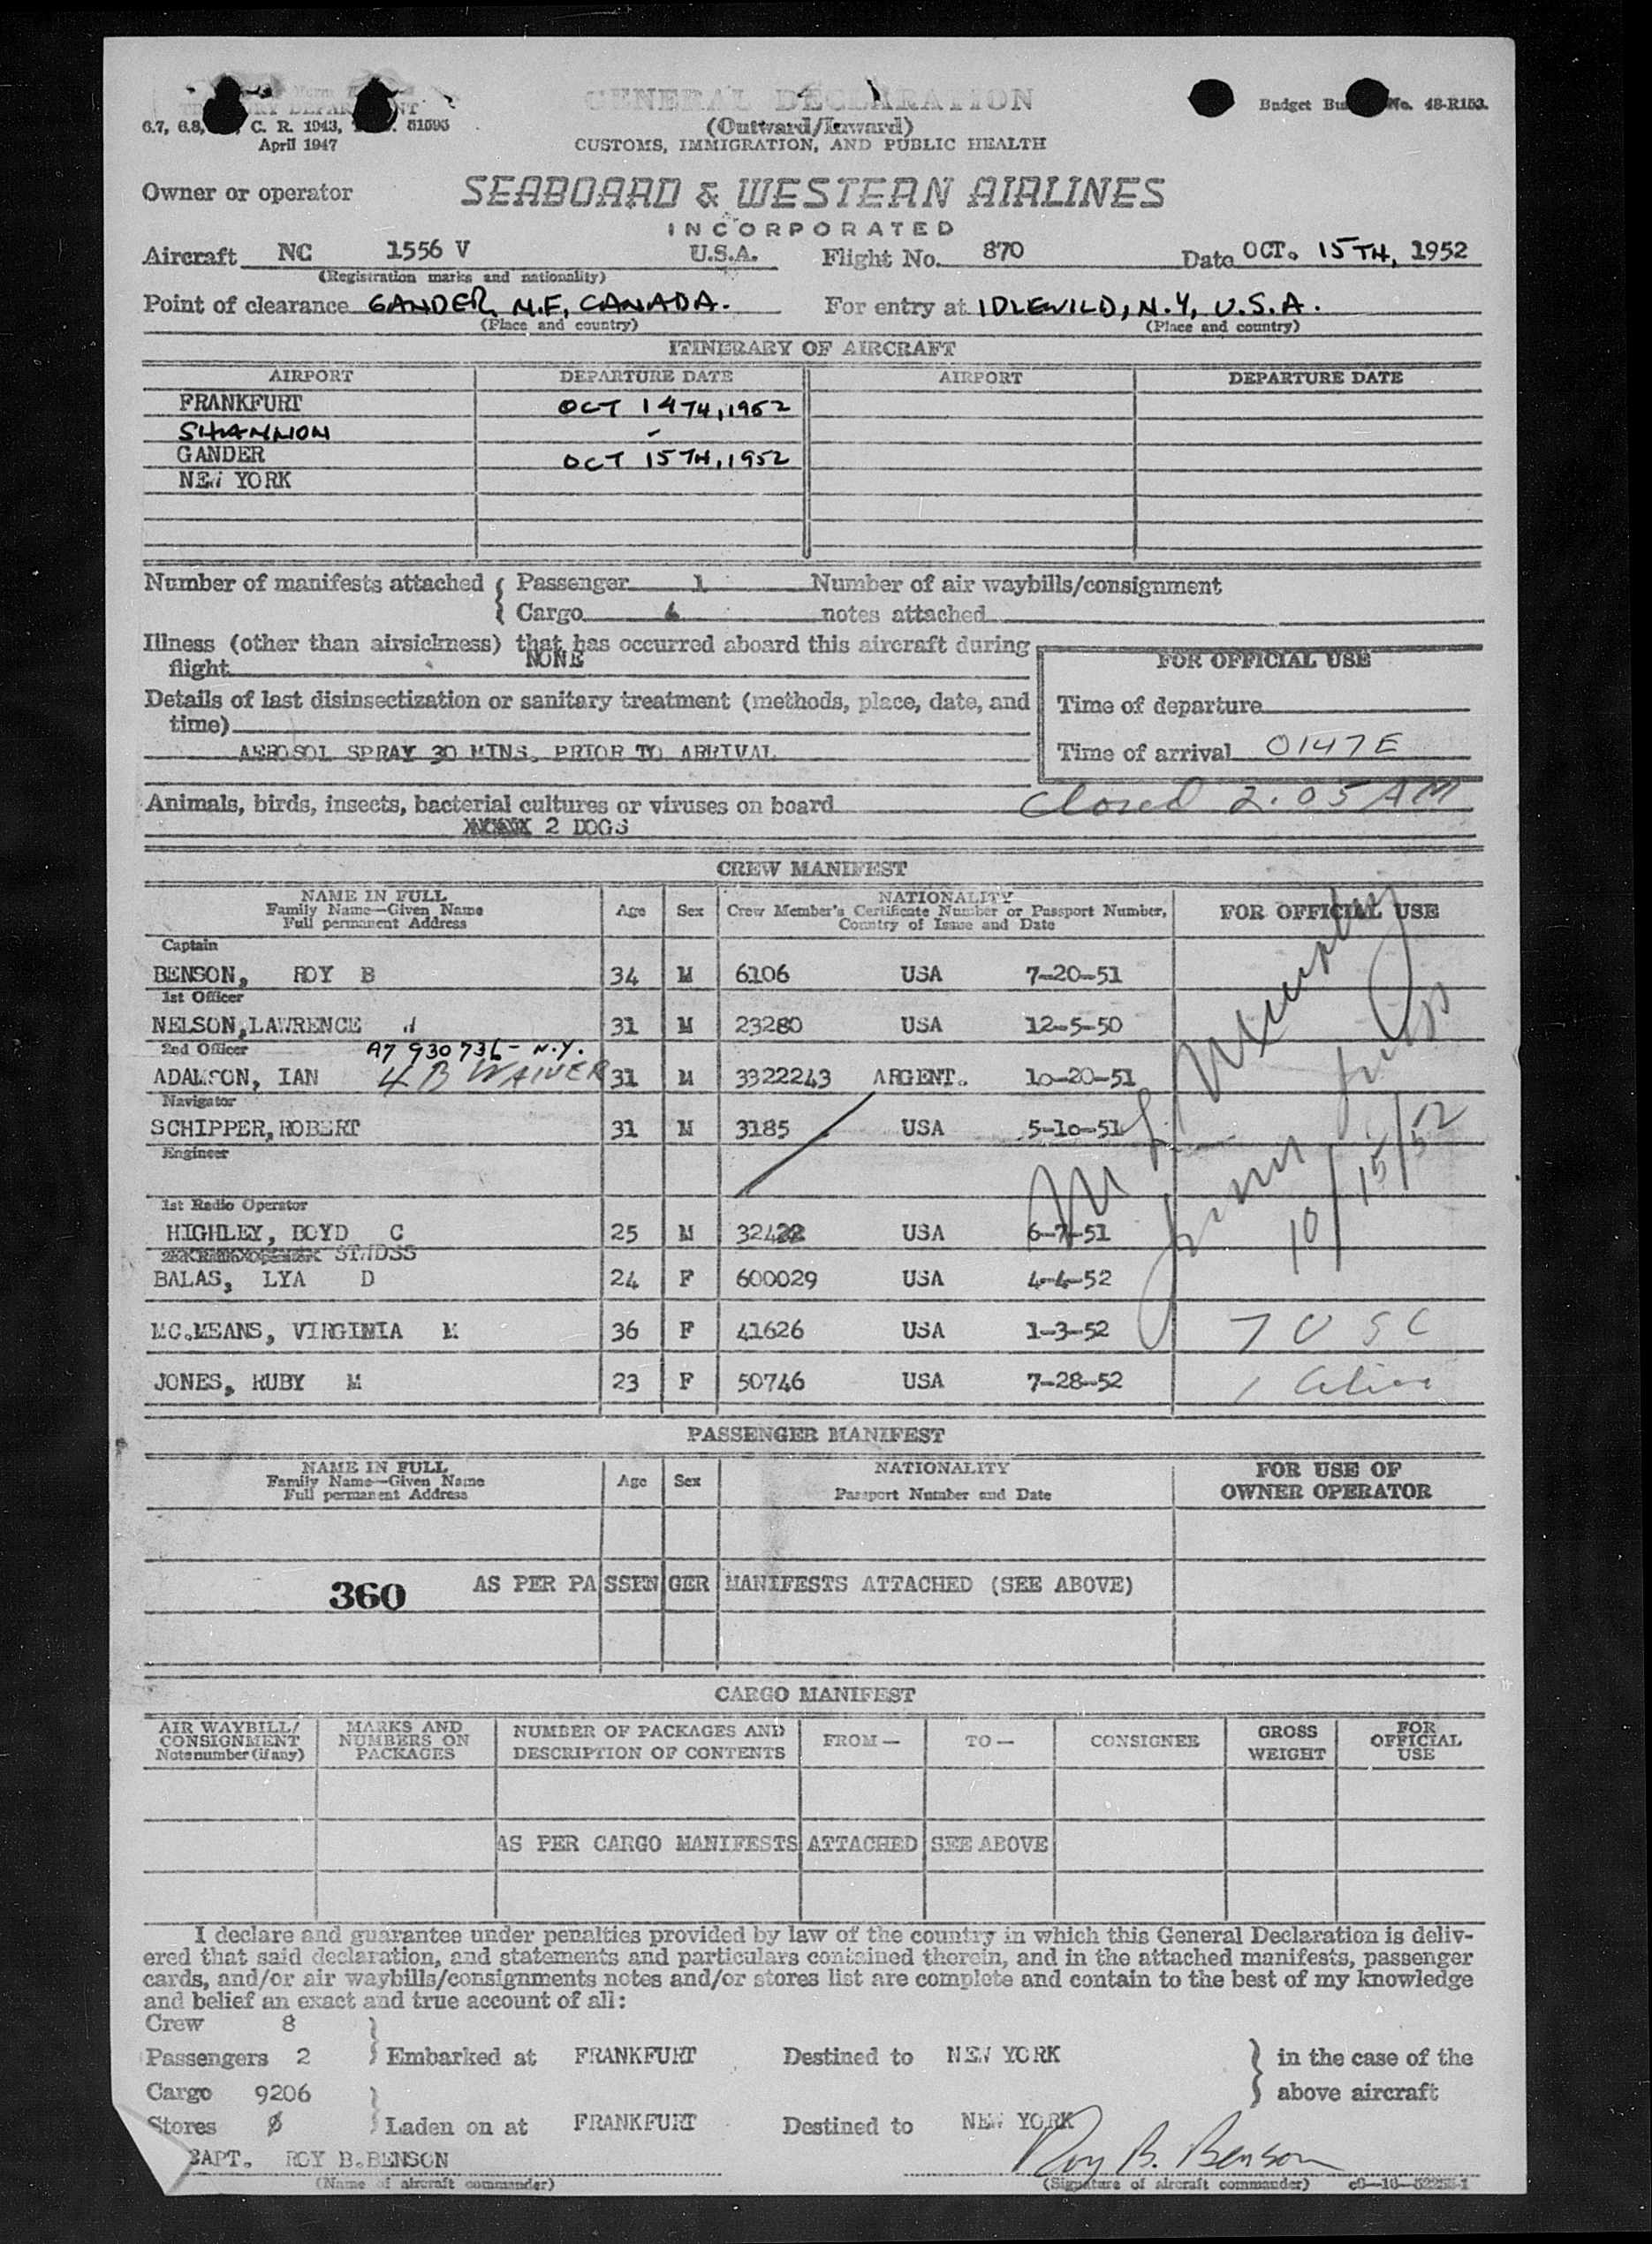 GENERAL DECLARATION
(Outward/Inward)
CUSTOMS, IMMIGRATION, AND PUBLIC HEALTH
6.7, 6.8, C. R. 1943, 51595
April 1947
Budget No. 48-R153.
Owner or operator SEABOARD & WESTERN AIRLINES
INCORPORATED
Aircraft NC 1556 V U.S.A. Flight No. 870 Date OCT. 15TH, 1952
(Registration marks and nationality)
Point of clearance GANDER, N.F, CANADA. For entry at IDLEWILD, N.Y, U.S.A.
(Place and country) (Place and country)
ITINERARY OF AIRCRAFT
AIRPORT DEPARTURE DATE AIRPORT DEPARTURE DATE
FRANKFURT OCT 14TH, 1952
SHANNON -
GANDER OCT 15TH, 1952
NEW YORK
Number of manifests attached { Passenger 1 Number of air waybills/consignment
Cargo notes attached
Illness (other than airsickness) that has occurred aboard this aircraft during
flight NONE
FOR OFFICIAL USE
Details of last disinsectization or sanitary treatment (methods, place, date, and
time)
Time of departure
AEROSOL SPRAY 30 MINS. PRIOR TO ARRIVAL
Time of arrival 0147E
Closed 2:05 AM
Animals, birds, insects, bacterial cultures or viruses on board
2 DOGS
CREW MANIFEST
NAME IN FULL
Family Name—Given Name
Full permanent Address
Age Sex
NATIONALITY
Crew Member's Certificate Number or Passport Number,
Country of Issue and Date
FOR OFFICIAL USE
Captain
BENSON, ROY B 34 M 6106 USA 7-20-51
1st Officer
NELSON, LAWRENCE 31 M 23280 USA 12-5-50
2nd Officer A7 930 736 - N.Y.
ADAMSON, IAN 4 B WAIVER 31 M 3322243 ARGENT. 10-20-51
Navigator
SCHIPPER, ROBERT 31 M 3185 USA 5-10-51
Engineer
1st Radio Operator
HIGHLEY, BOYD C 25 M USA 6-7-51
STWDSS
BALAS, LYA D 24 F 600029 USA 4-4-52
MC.MEANS, VIRGINIA M 36 F 41626 USA 1-3-52
JONES, RUBY M 23 F 50746 USA 7-28-52
10/15/52
7 USC
1 alien
PASSENGER MANIFEST
NAME IN FULL
Family Name—Given Name
Full permanent Address
Age Sex
NATIONALITY
Passport Number and Date
FOR USE OF
OWNER OPERATOR
360 AS PER PASSENGER MANIFESTS ATTACHED (SEE ABOVE)
CARGO MANIFEST
AIR WAYBILL/
CONSIGNMENT
Note number (if any)
MARKS AND
NUMBERS ON
PACKAGES
NUMBER OF PACKAGES AND
DESCRIPTION OF CONTENTS
FROM— TO— CONSIGNEE
GROSS
WEIGHT
FOR
OFFICIAL
USE
AS PER CARGO MANIFESTS ATTACHED SEE ABOVE
I declare and guarantee under penalties provided by law of the country in which this General Declaration is deliv-
ered that said declaration, and statements and particulars contained therein, and in the attached manifests, passenger
cards, and/or air waybills/consignments notes and/or stores list are complete and contain to the best of my knowledge
and belief an exact and true account of all:
Crew 8
Passengers 2 } Embarked at FRANKFURT Destined to NEW YORK } in the case of the
Cargo 9206 above aircraft
Stores Ø } Laden on at FRANKFURT Destined to NEW YORK
CAPT. ROY B.BENSON Roy B. Benson
(Name of aircraft commander) (Signature of aircraft commander)